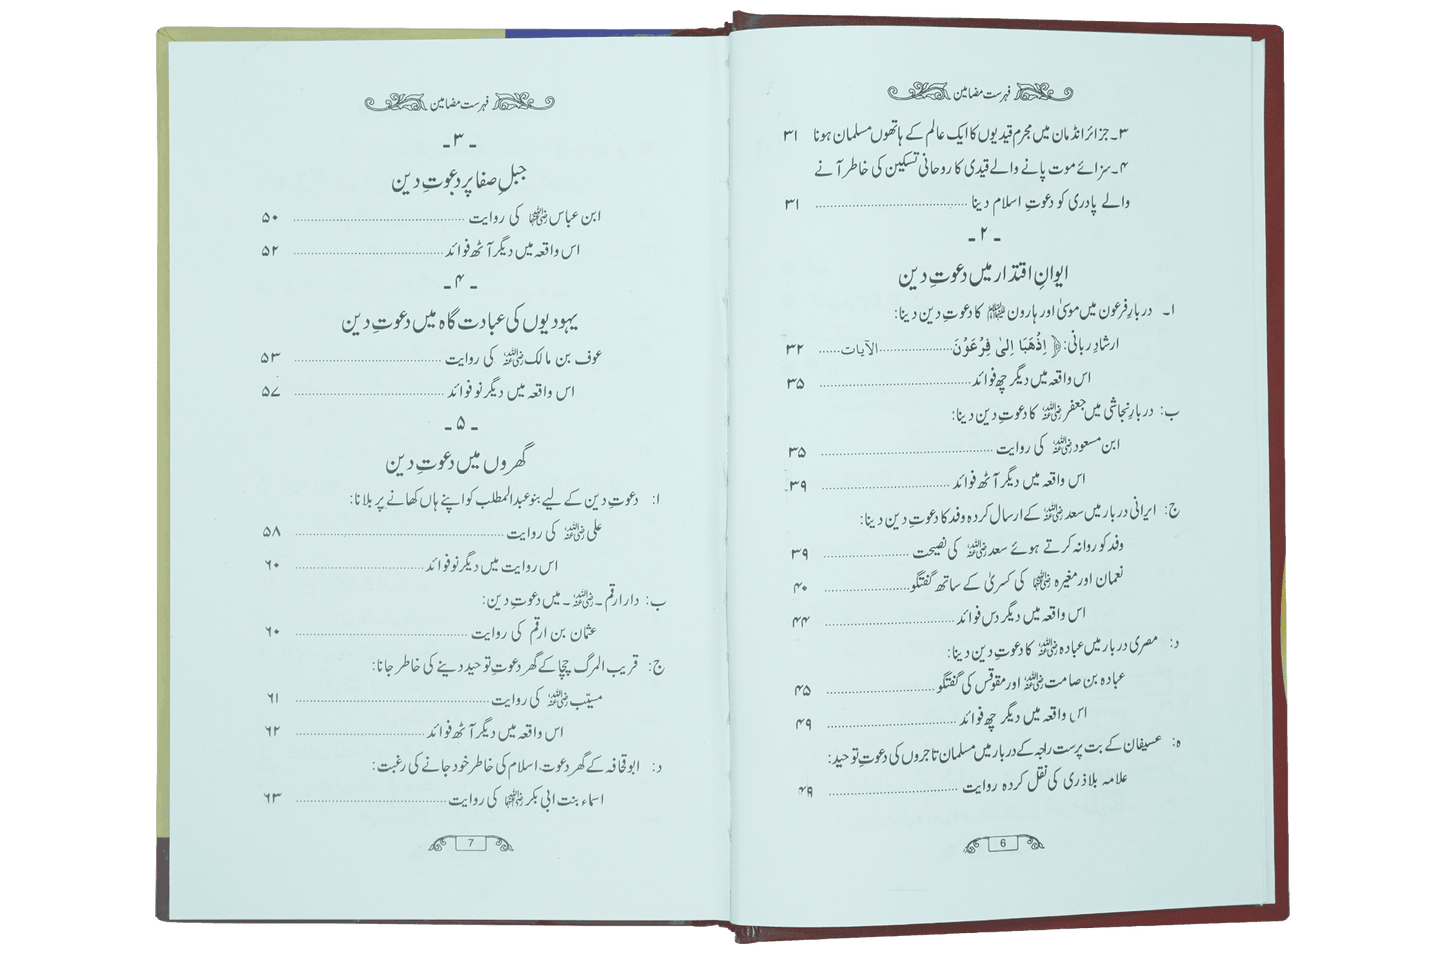 فہرست مضامین
۳۔ جزائر انڈمان میں مجرم قیدیوں کا ایک عالم کے ہاتھوں مسلمان ہونا ۳۱
۴۔ سزائے موت پانے والے قیدی کا روحانی تسکین کی خاطر آنے
والے پادری کو دعوتِ اسلام دینا ........ ۳۱
۔ ۲ ۔
ایوانِ اقتدار میں دعوتِ دین
ا۔ دربارِ فرعون میں موسیٰ اور ہارون علیہما السلام کا دعوتِ دین دینا:
ارشادِ ربانی: ﴿ اِذْهَبَا اِلىٰ فِرْعَوْنَ ........ الآیات ...... ۳۲
اس واقعہ میں دیگر چھ فوائد ........ ۳۵
ب: دربارِ نجاشی میں جعفر رضی اللہ عنہ کا دعوتِ دین دینا:
ابن مسعود رضی اللہ عنہ کی روایت ........ ۳۵
اس واقعہ میں دیگر آٹھ فوائد ........ ۳۹
ج: ایرانی دربار میں سعد رضی اللہ عنہ کے ارسال کردہ وفد کا دعوتِ دین دینا:
وفد کو روانہ کرتے ہوئے سعد رضی اللہ عنہ کی نصیحت ........ ۳۹
نعمان اور مغیرہ رضی اللہ عنہما کی کسریٰ کے ساتھ گفتگو ........ ۴۰
اس واقعہ میں دیگر دس فوائد ........ ۴۴
د: مصری دربار میں عبادہ رضی اللہ عنہ کا دعوتِ دین دینا:
عبادہ بن صامت رضی اللہ عنہ اور مقوقس کی گفتگو ........ ۴۵
اس واقعہ میں دیگر چھ فوائد ........ ۴۹
ہ: عسیفان کے بت پرست راجہ کے دربار میں مسلمان تاجروں کی دعوتِ توحید:
علامہ بلاذری کی نقل کردہ روایت ........ ۴۹
6
فہرست مضامین
۔ ۳ ۔
جبلِ صفا پر دعوتِ دین
ابن عباس رضی اللہ عنہما کی روایت ........ ۵۰
اس واقعہ میں دیگر آٹھ فوائد ........ ۵۲
۔ ۴ ۔
یہودیوں کی عبادت گاہ میں دعوتِ دین
عوف بن مالک رضی اللہ عنہ کی روایت ........ ۵۳
اس واقعہ میں دیگر نو فوائد ........ ۵۷
۔ ۵ ۔
گھروں میں دعوتِ دین
ا: دعوتِ دین کے لیے بنو عبدالمطلب کو اپنے ہاں کھانے پر بلانا:
علی رضی اللہ عنہ کی روایت ........ ۵۸
اس روایت میں دیگر نو فوائد ........ ۶۰
ب: دار ارقم ۔ رضی اللہ عنہ ۔ میں دعوتِ دین:
عثمان بن ارقم کی روایت ........ ۶۰
ج: قریب المرگ چچا کے گھر دعوتِ توحید دینے کی خاطر جانا:
مسیّب رضی اللہ عنہ کی روایت ........ ۶۱
اس واقعہ میں دیگر آٹھ فوائد ........ ۶۲
د: ابو قحافہ کے گھر دعوت، اسلام کی خاطر خود جانے کی رغبت:
اسماء بنت ابی بکر رضی اللہ عنہما کی روایت ........ ۶۳
7